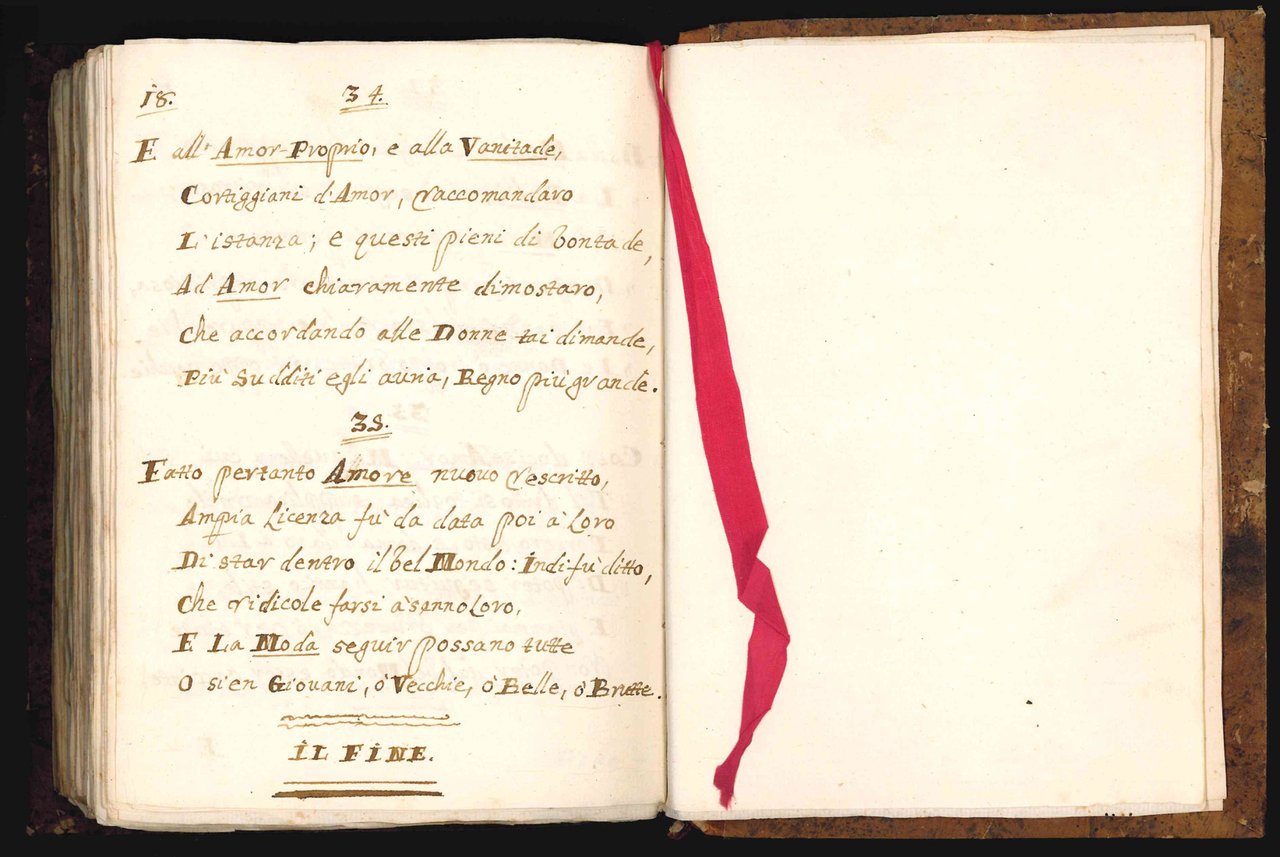 18.
34.
E all' Amor-Proprio, e alla Vanitade,
Cortiggiani d'Amor, raccomandaro
L'istanza; e questi pieni di bontade,
Ad Amor chiaramente dimostaro,
Che accordando alle Donne tai dimande,
Più Sudditi egli auria, Regno più grande.
35.
Fatto pertanto Amore nuovo rescritto,
Ampia Licenza fù da data poi à Loro
Di star dentro il bel Mondo: indi fù ditto,
Che ridicole farsi à sonno Loro,
E La Moda seguir possano tutte
O sien Giovani, ò Vecchie, ò Belle, ò Brutte.
IL FINE.